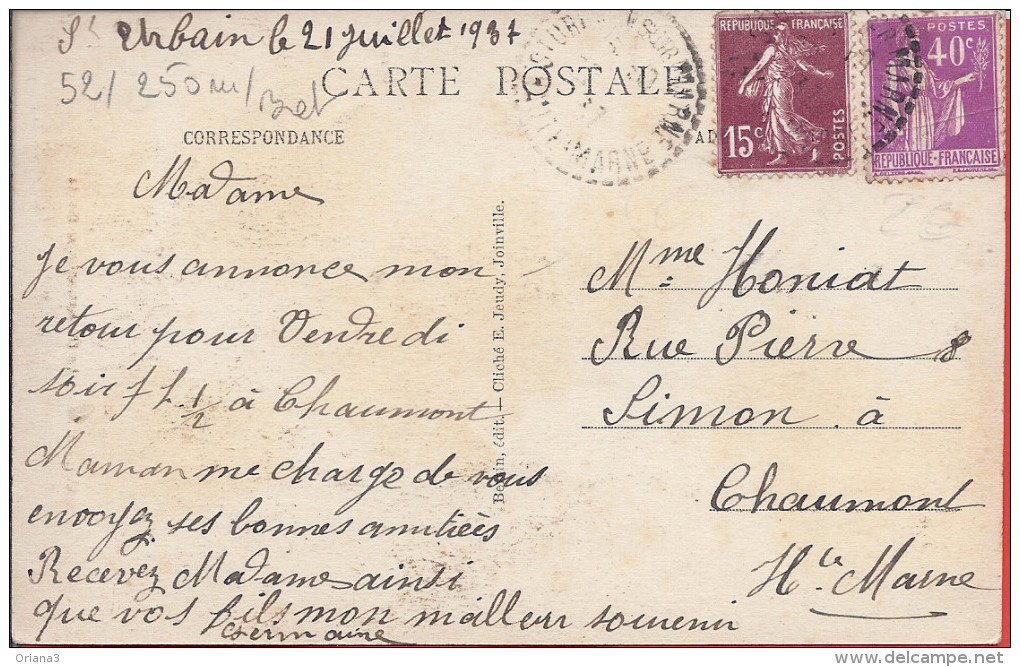 St Urbain le 21 juillet 1937
52/250m/
CARTE POSTALE
CORRESPONDANCE
Madame
Je vous annonce mon
retour pour Vendredi
soir 7h 1/2 à Chaumont
Maman me charge de vous
envoyez ses bonnes amitiées
Recevez Madame ainsi
que vos fils mon meilleur souvenir
Germaine
Berlin, édit. — Cliché E. Jeudy, Joinville.
RÉPUBLIQUE FRANÇAISE
15c
POSTES
POSTES
40c
RÉPUBLIQUE-FRANÇAISE
MARNE
Mme Honiat
Rue Pierre
Simon à
Chaumont
Hte Marne
Oriana3
delcampe.net